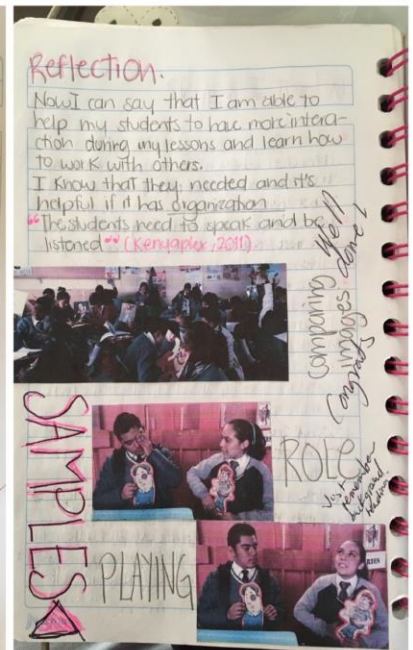 Reflection.
Now I can say that I am able to
help my students to have more intera-
ction during my lessons and learn how
to work with others.
I know that they needed and it's
helpful if it has organization
"The students need to speak and be
listened" (Kenyaplex, 2011)
comparing
images
Well
done!
Congrats
SAMPLES
ROLE
PLAYING
Just
remember